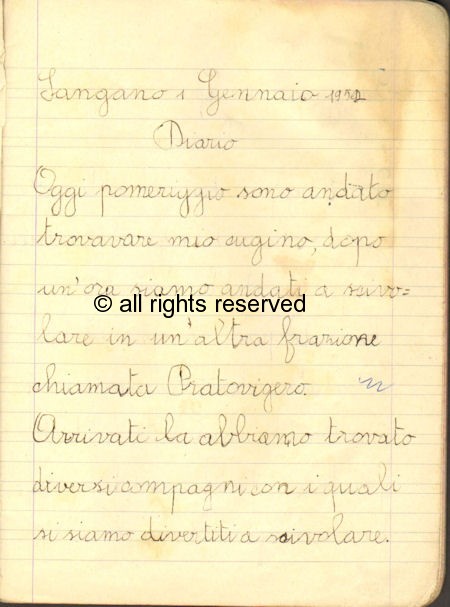 Sangano 1 Gennaio 1952
Diario
Oggi pomeriggio sono andato
trovavare mio cugino, dopo
un'ora siamo andati a scivo=
© all rights reserved
lare in un'altra frazione
chiamata Pratovigero.
Arrivati la abbiamo trovato
diversi compagni con i quali
si siamo divertiti a scivolare.